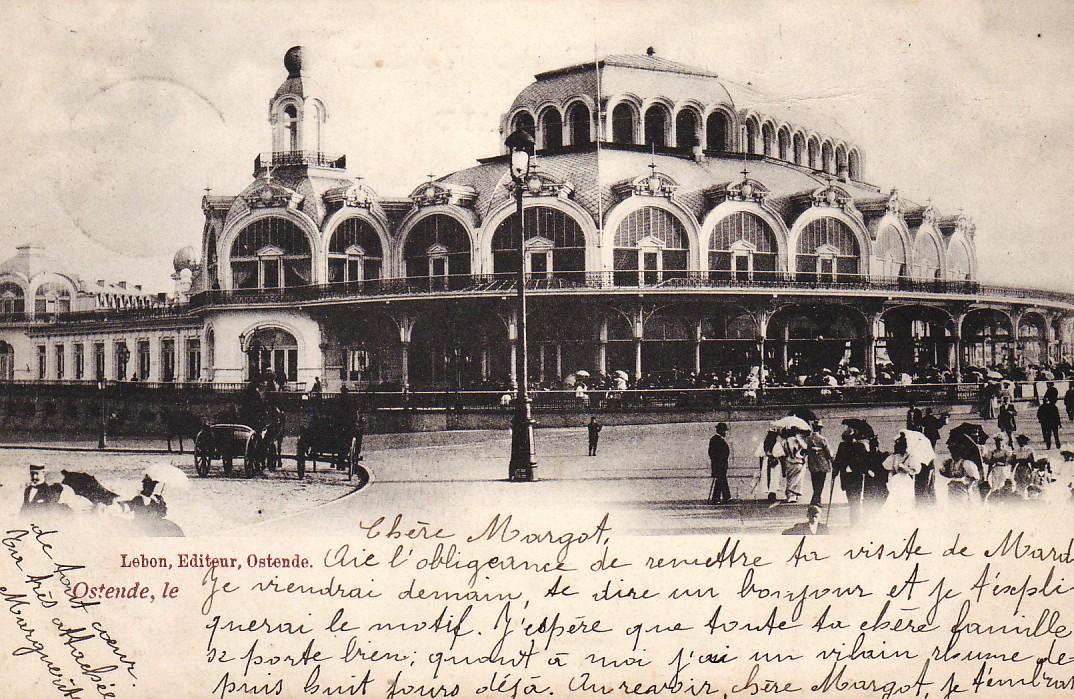 Chère Margot,
Lebon, Editeur, Ostende.
Aie l'obligeance de remettre ta visite de Mard
Ostende, le
Je viendrai demain, te dire un bonjour et je t'expli-
querai le motif. J'espère que toute ta chère famille
se porte bien; quant à moi j'ai un vilain rhume de-
puis huit jours déjà. Au revoir, chère Margot, je t'embras
de tout cœur.
Ta très attachée
Marguerite